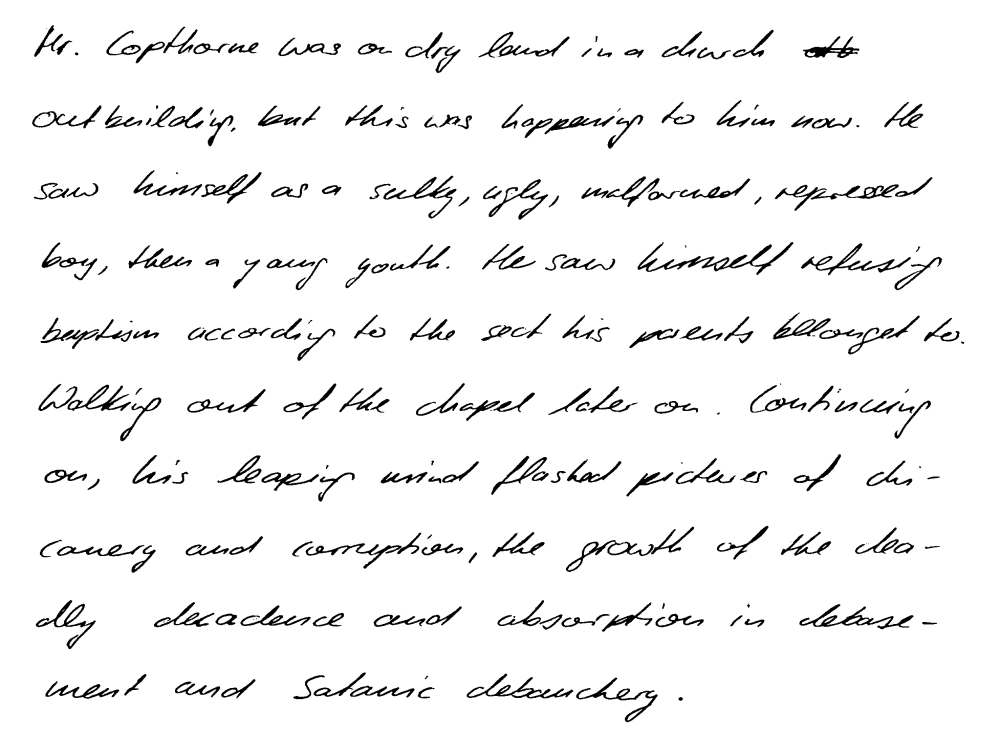 Mr. Copthorne was on dry land in a church
outbuilding, but this was happening to him now. He
saw himself as a sulky, ugly, malformed, repressed
boy, then a yang youth. He saw himself refusing
baptism according to the sect his parents bellonget to.
Walking out of the chapel later on. Continuing
on, his leaping mind flashed pictures of chi-
canery and corruption, the growth of the dea-
dly decadence and absorption in debase-
ment and Satanic debauchery.